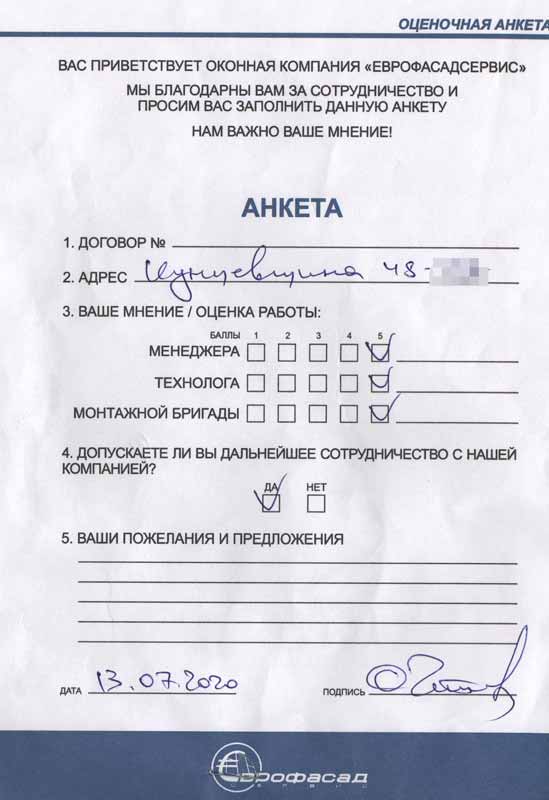 ОЦЕНОЧНАЯ АНКЕТА
ВАС ПРИВЕТСТВУЕТ ОКОННАЯ КОМПАНИЯ «ЕВРОФАСАДСЕРВИС»
МЫ БЛАГОДАРНЫ ВАМ ЗА СОТРУДНИЧЕСТВО И
ПРОСИМ ВАС ЗАПОЛНИТЬ ДАННУЮ АНКЕТУ
НАМ ВАЖНО ВАШЕ МНЕНИЕ!
АНКЕТА
1. ДОГОВОР №
2. АДРЕС Кунцевщина 48-
3. ВАШЕ МНЕНИЕ / ОЦЕНКА РАБОТЫ:
БАЛЛЫ 1 2 3 4 5
МЕНЕДЖЕРА
ТЕХНОЛОГА
МОНТАЖНОЙ БРИГАДЫ
4. ДОПУСКАЕТЕ ЛИ ВЫ ДАЛЬНЕЙШЕЕ СОТРУДНИЧЕСТВО С НАШЕЙ
КОМПАНИЕЙ?
ДА НЕТ
5. ВАШИ ПОЖЕЛАНИЯ И ПРЕДЛОЖЕНИЯ
ДАТА 13.07.2020 ПОДПИСЬ
Еврофасад
СЕРВИС